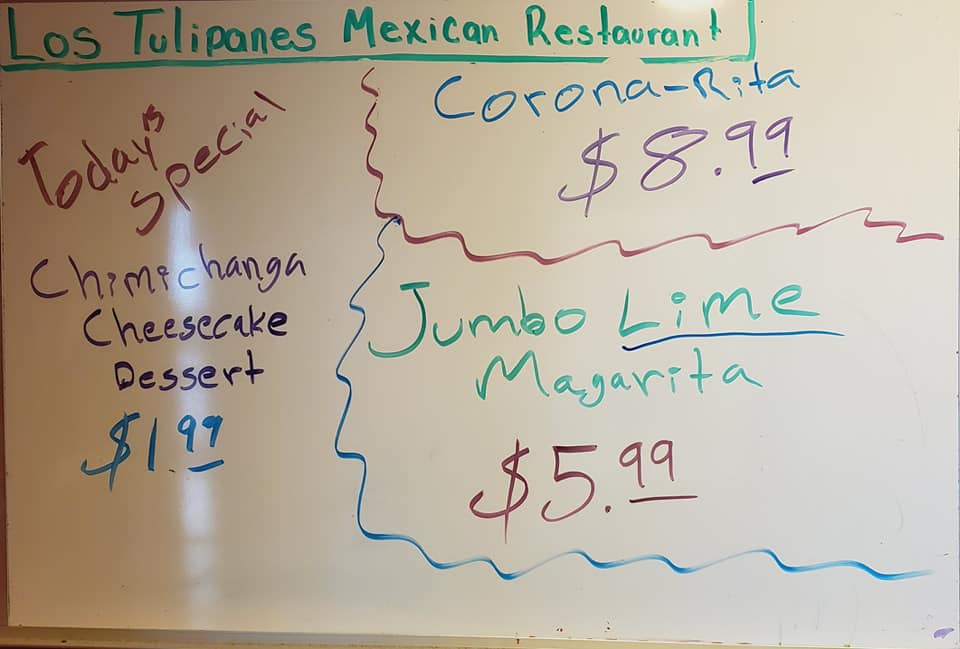 Los Tulipanes Mexican Restaurant
Today's
Special
Chimichanga
Cheesecake
Dessert
$1.99
Corona-Rita
$8.99
Jumbo Lime
Magarita
$5.99